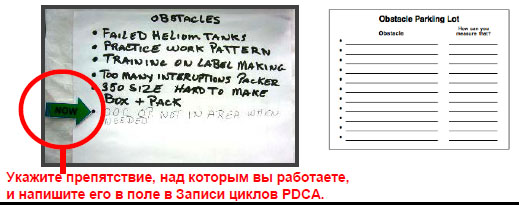 OBSTACLES
• FAILED HELIUM TANKS
• PRACTICE WORK PATTERN
• TRAINING ON LABEL MAKING
• TOO MANY INTERUPTIONS PACKER
• 350 SIZE HARD TO MAKE
BOX + PACK
NOW
• OP NOT IN AREA WHEN
NEEDED
Obstacle Parking Lot
Obstacle
How can you
measure that?
Укажите препятствие, над которым вы работаете,
и напишите его в поле в Записи циклов PDCA.